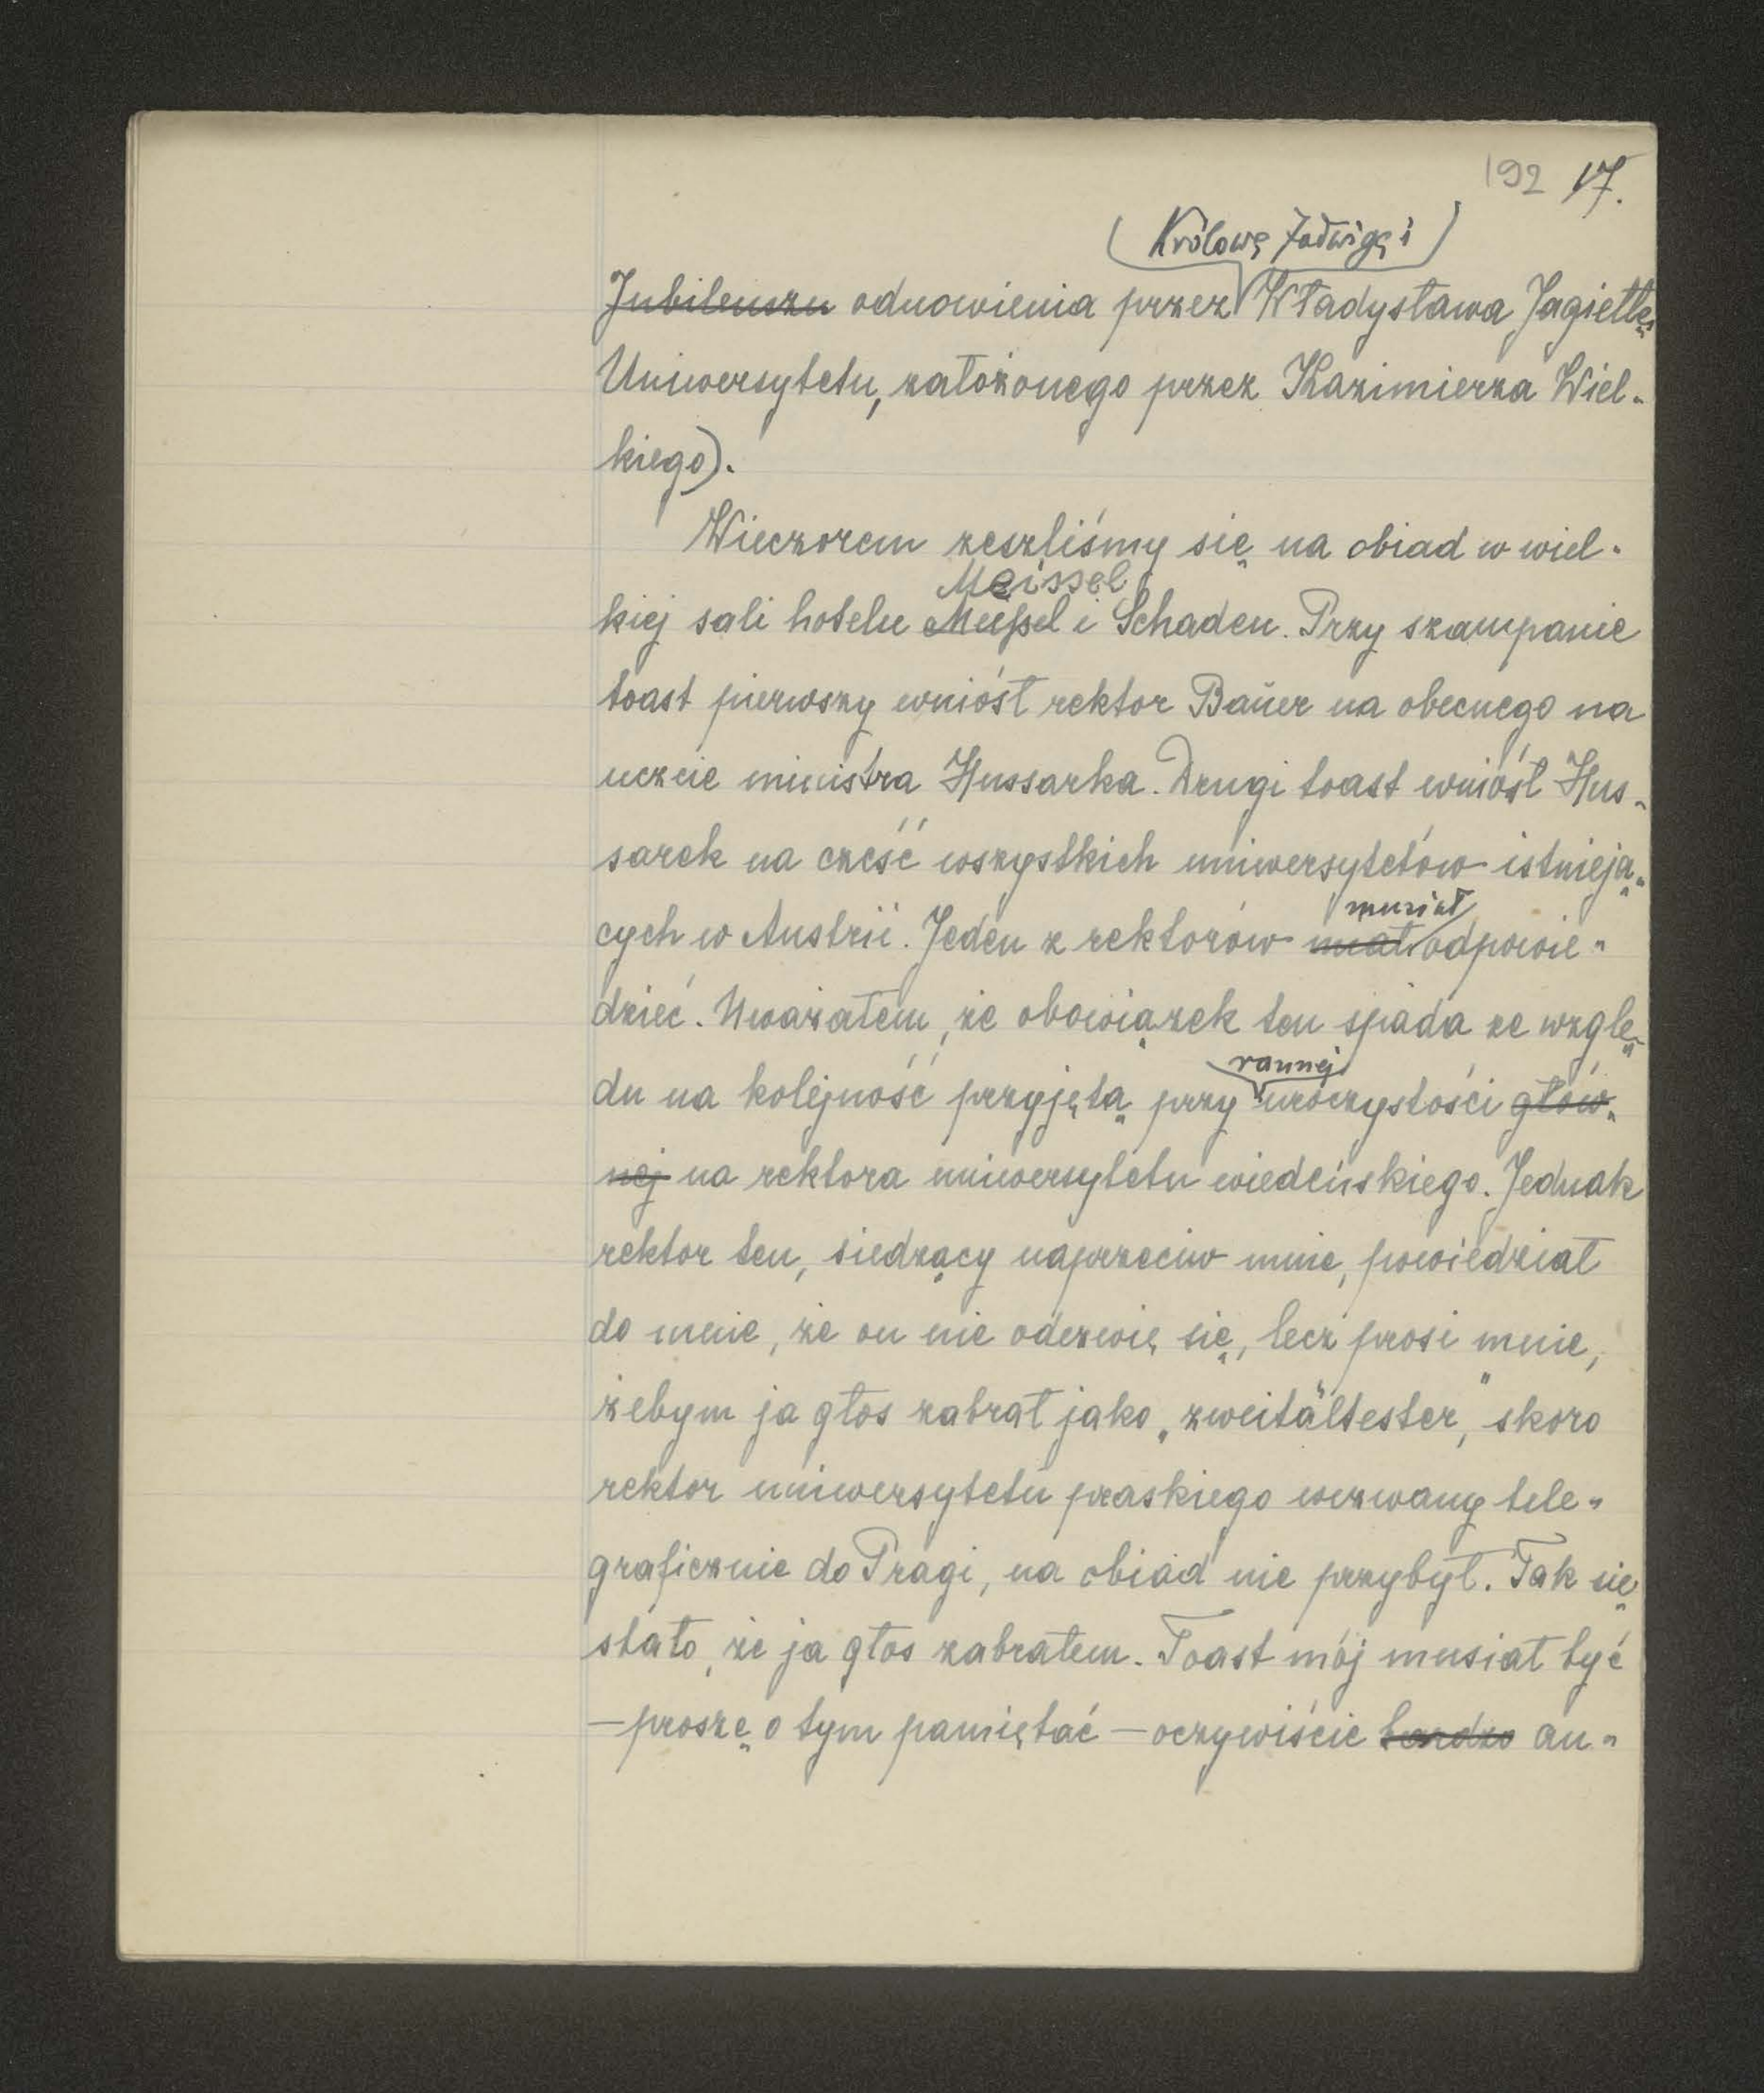 192 17.
(Królowę Jadwigę i)
Jubileuszu odnowienia przez Władysława Jagiełłę
Uniwersytetu, założonego przez Kazimierza Wiel-
kiego).
Wieczorem zeszliśmy się na obiad w wiel-
Meissel
kiej sali hotelu Meißel i Schaden. Przy szampanie
toast pierwszy wniósł rektor Baŭer na obecnego na
uczcie ministra Hussarka. Drugi toast wniósł Hus-
sarek na cześć wszystkich uniwersytetów istnieją-
musiał
cych w Austrii. Jeden z rektorów miał odpowie-
dzieć. Uważałem, że obowiązek ten spada ze wzglę-
rannej
du na kolejność przyjętą przy uroczystości głów-
nej na rektora uniwersytetu wiedeńskiego. Jednak
rektor ten, siedzący naprzeciw mnie, powiedział
do mnie, że on nie odezwie się, lecz prosi mnie,
żebym ja głos zabrał jako „zweitältester”, skoro
rektor uniwersytetu praskiego wezwany tele-
graficznie do Pragi, na obiad nie przybył. Tak się
stało, że ja głos zabrałem. Toast mój musiał być
— proszę o tym pamiętać — oczywiście bardzo au-